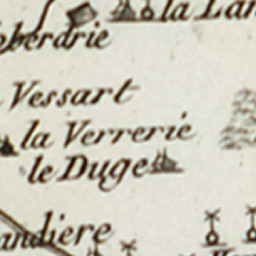 la Lan
oberdrie
Vessart
la Verrerie
le Duge
andiere